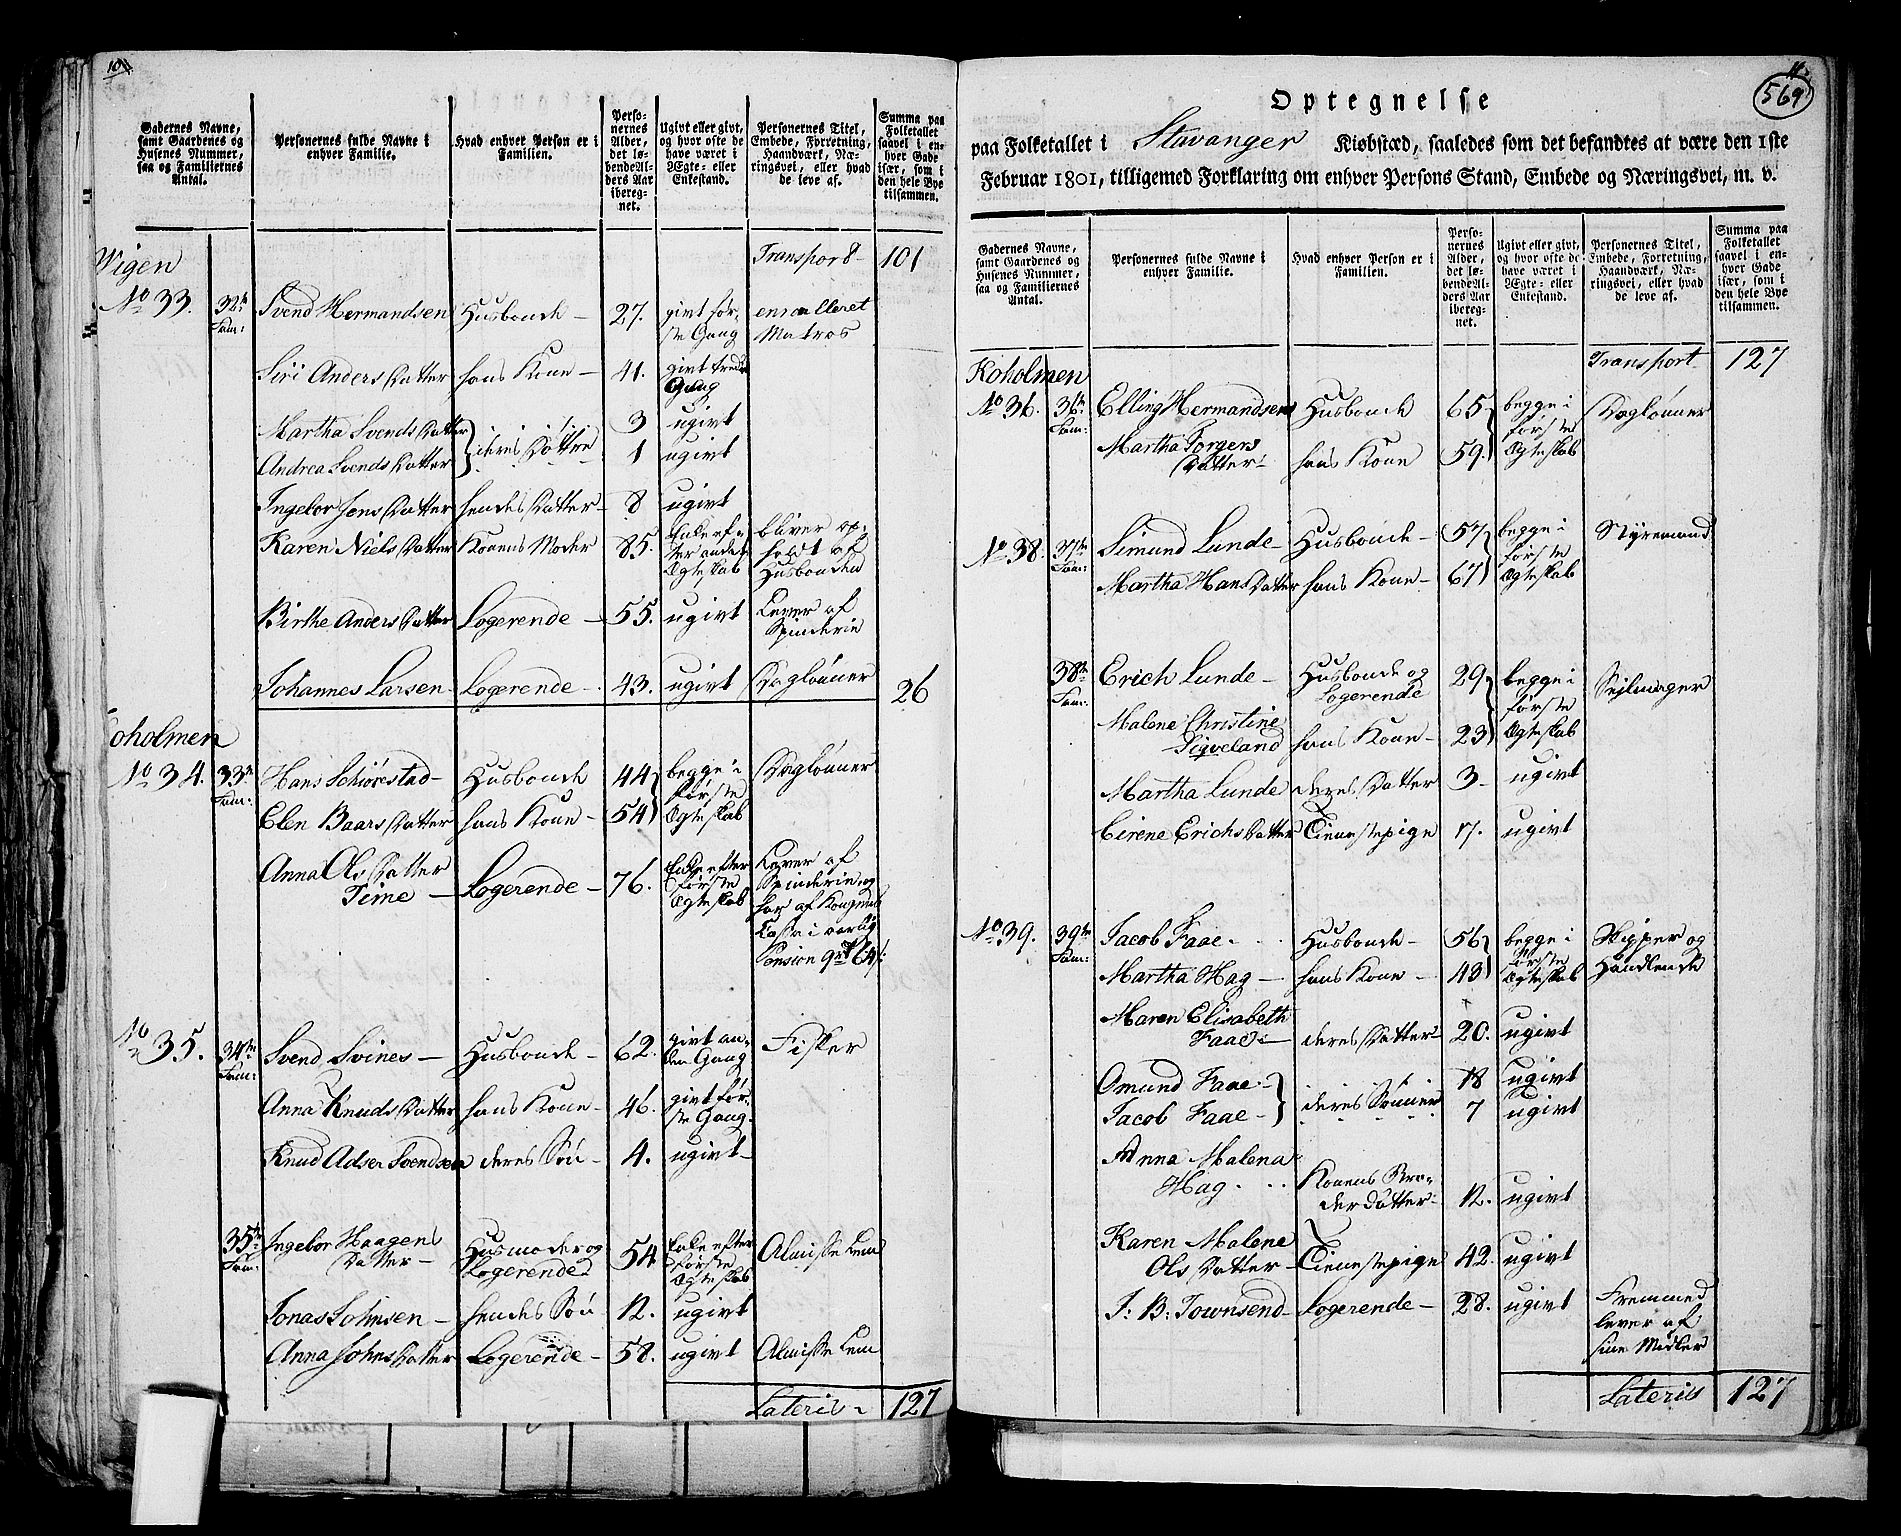 10
Gadernes Navne, samt Gaardenes og Husenes Nummer, saa og Familiernes Antal.
Personernes fulde Navne i enhver Familie.
Hvad enhver Person er i Familien.
Personernes Alder, det løbende Alders Aar iberegnet.
Ugivt eller givt, og hvor ofte de have været i Ægte- eller Enkestand.
Personernes Titel, Embede, Forretning, Haandværk, Næringsvei, eller hvad de leve af.
Summa paa Folketallet saavel i enhver Gade især, som i den hele Bye tilsammen.
Wigen Transport 101
No 33. 32te Fam: Svend Hermandsen Husbonde 27. givt første Gang enrolleret Matros
Siri Anders Datter hans Kone 41. givt tredie Gang
Martha Svends Datter 3 ugivt
deres Døttre
Andrea Svends Datter 1 ugivt
Ingebor Jens Datter hendes Datter 8 ugivt
Karen Niels Datter Konens Moder 85. Enke efter andet Ægteskab bliver opholdt af Husbonden
Birthe Anders Datter Logerende 55. ugivt Lever af Spinderie
Johannes Larsen Logerende 43. ugivt Daglønner 26
Koholmen
No 34. 33te Fam: Hans Schiørestad Husbonde 44 begge i første Ægteskab Daglønner
Elen Baars Datter hans Kone 54
Anna Ols Datter Time Logerende 76. Enke efter første Ægteskab Lever af Spinderie og har af Kongens Cassa i aarlig Pension
No 35. 34te Fam: Svend Svines Husbonde 62. givt anden Gang Fisker
Anna Knuds Datter hans Kone 46. givt første Gang
Knud Adser Svendsen deres Søn 4. ugivt
35te Fam: Ingebor Haagens Datter Husmoder og Logerende 54 Enke efter første Ægteskab Almisse Lem
Jonas Johnsen hendes Søn 12. ugivt
Anna Johns Datter Logerende 58. ugivt Almisse Lem
Lateris 127
11
569
Optegnelse
paa Folketallet i Stavanger Kiøbstæd, saaledes som det befandtes at være den 1ste
Februar 1801, tilligemed Forklaring om enhver Persons Stand, Embede og Næringsvei, m. v.
Gadernes Navne, samt Gaardenes og Husenes Nummer, saa og Familiernes Antal.
Personernes fulde Navne i enhver Familie.
Hvad enhver Person er i Familien.
Personernes Alder, det løbende Alders Aar iberegnet.
Ugivt eller givt, og hvor ofte de have været i Ægte- eller Enkestand.
Personernes Titel, Embede, Forretning, Haandværk, Næringsvei, eller hvad de leve af.
Summa paa Folketallet saavel i enhver Gade især, som i den hele Bye tilsammen.
Koholmen Transport 127
No 36. 36te Fam: Elling Hermandsen Husbonde 65 begge i første Ægteskab Daglønner
Martha Torgers Datter hans Kone 59.
No 38. 37te Fam: Simund Lunde Husbonde 57 begge i første Ægteskab Styremand
Martha Hans Datter hans Kone 67
38te Fam: Erich Lunde Husbonde og Logerende 29 begge i første Ægteskab Sejlmager
Malene Christine Sigveland hans Kone 23
Martha Lunde deres Datter 3 ugivt
Cirene Erichs Datter Tienestepige 17. ugivt
No 39. 39te Fam: Jacob Faae Husbonde 56 begge i første Ægteskab Skipper og Handlende
Martha Hag hans Kone 43
Maren Elisabeth Faae deres Datter 20. ugivt
Omund Faae 18 ugivt
deres Sønner
Jacob Faae 7 ugivt
Anna Malena Hag Konens Broder Datter 12. ugivt
Karen Malene Ols Datter Tienestepige 42. ugivt
J: B: Townsend Logerende 28. ugivt Fremmed lever af sine Midler
Lateris 127